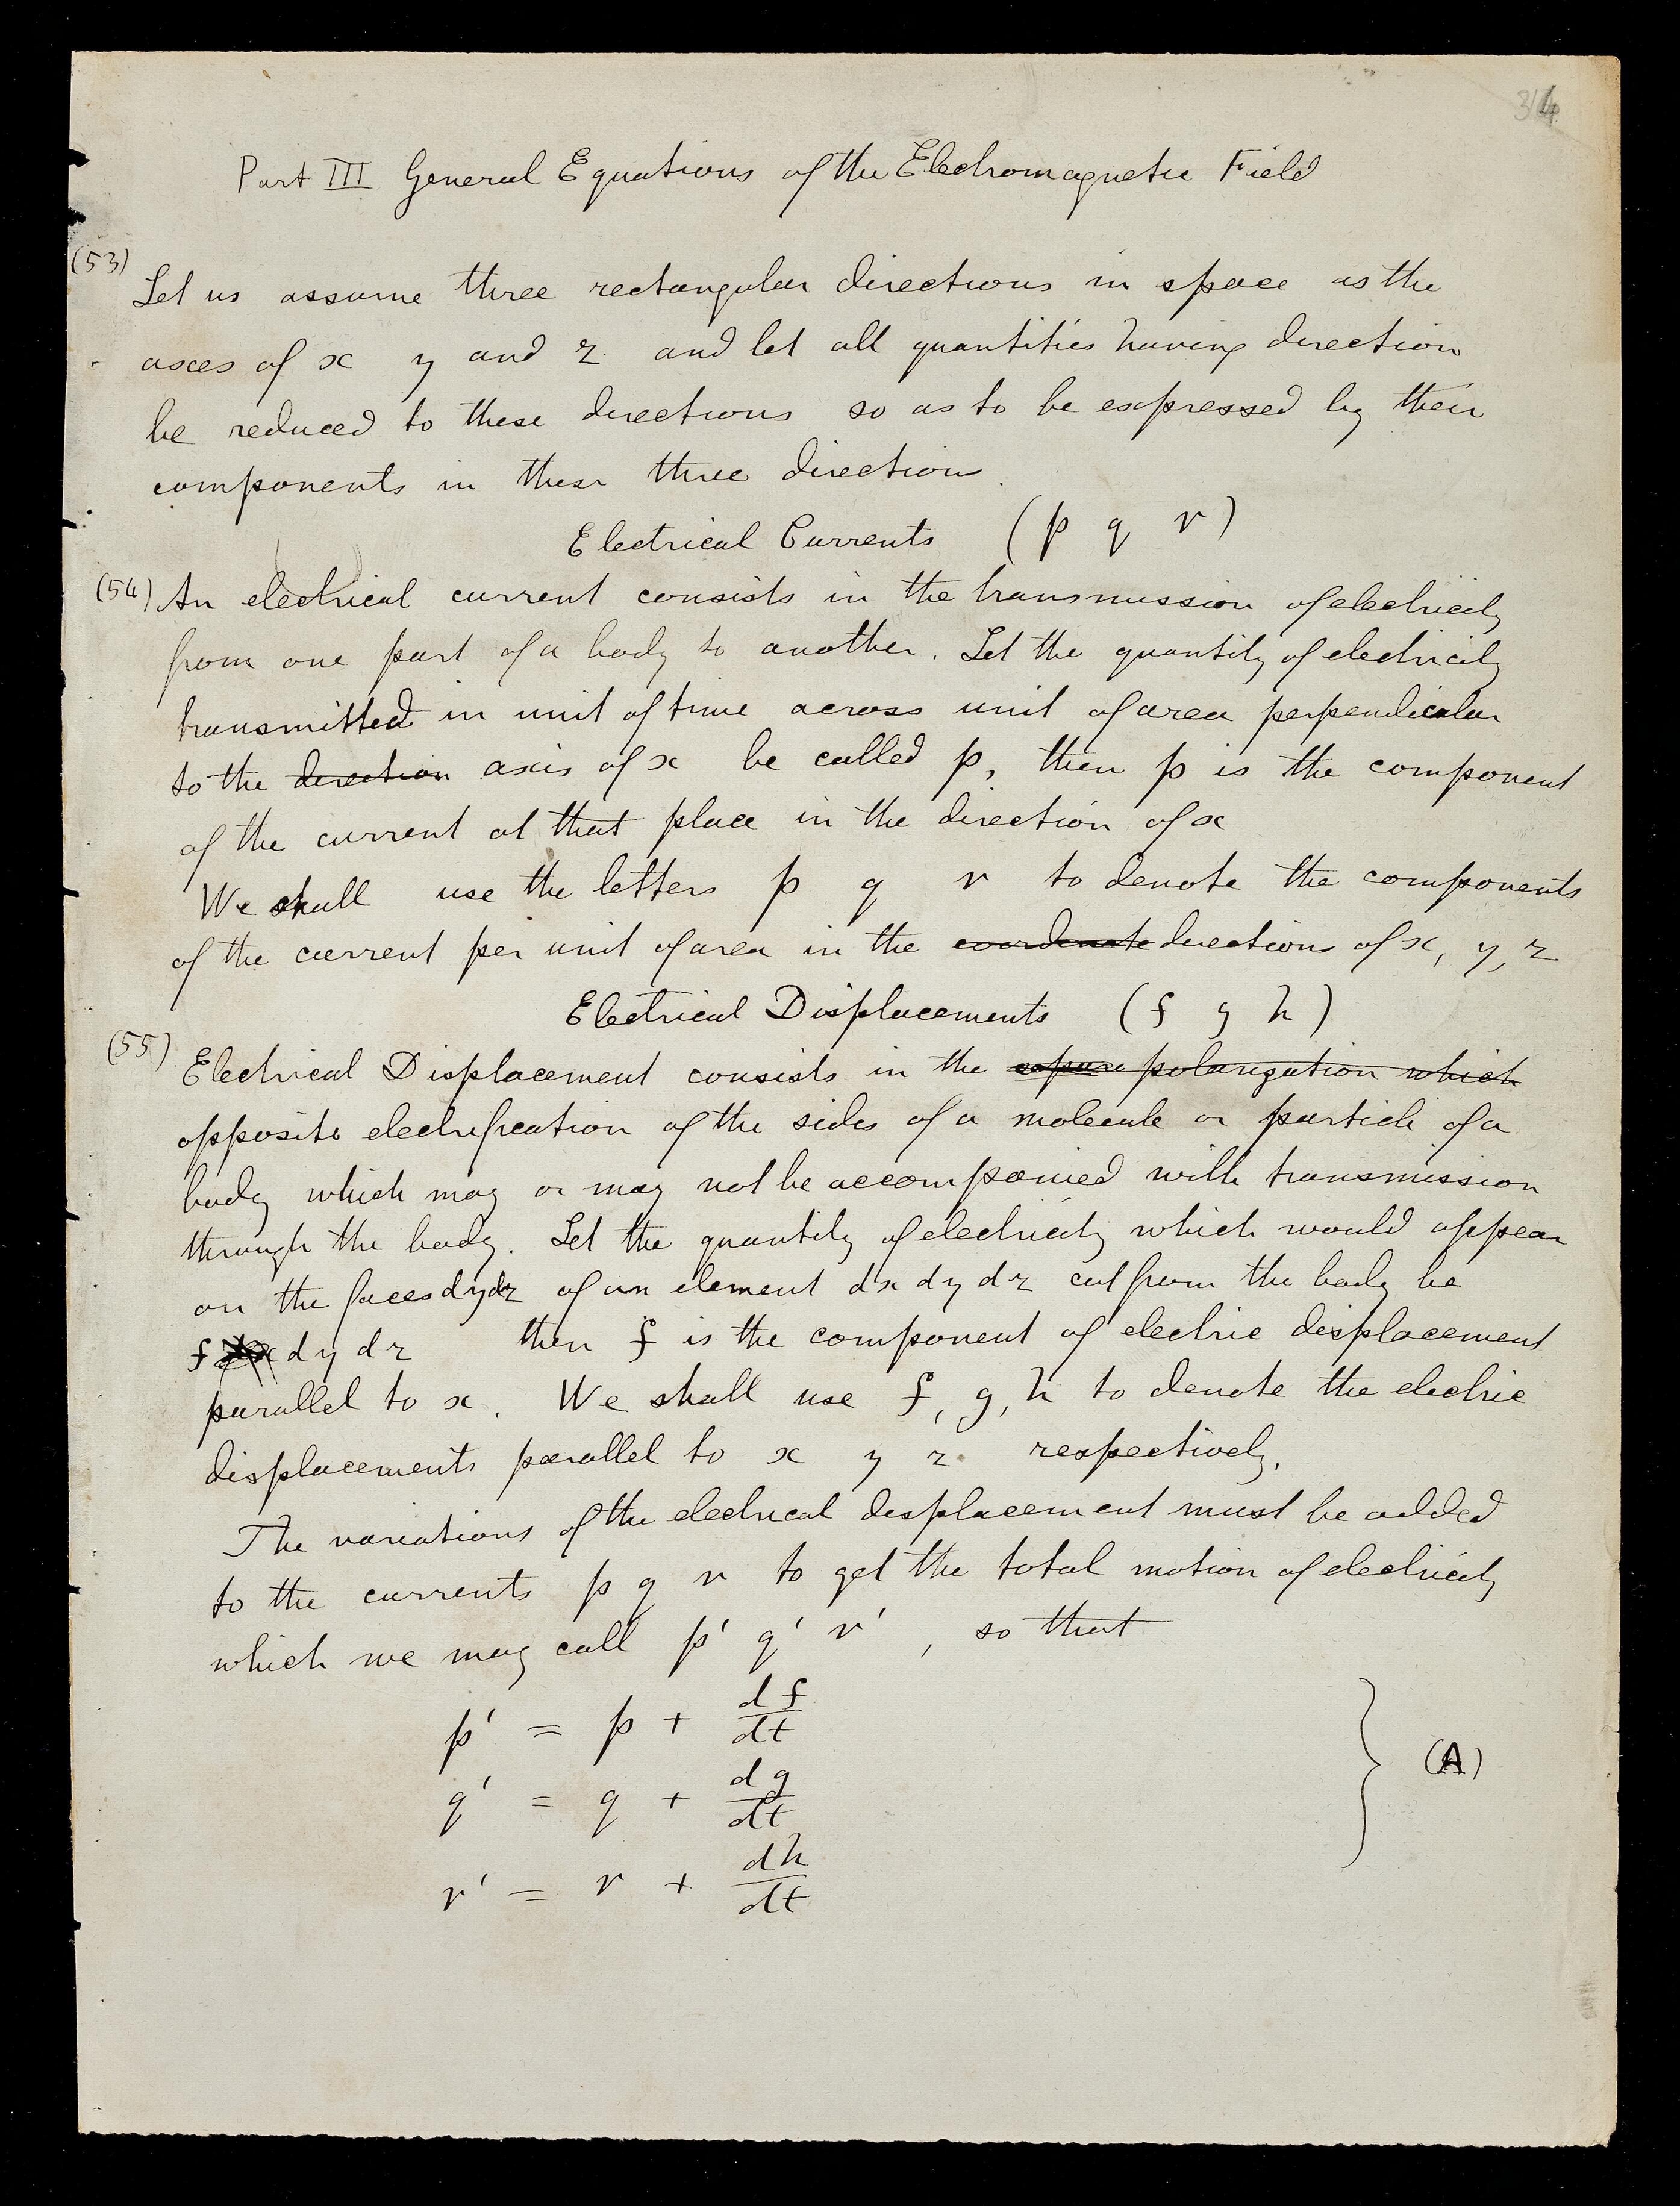 34
Part III General Equations of the Electromagnetic Field
(53)
Let us assume three rectangular directions in space as the
axes of x y and z and let all quantities having direction
be reduced to these directions so as to be expressed by their
components in these three direction.
Electrical Currents (p q r)
(54) An electrical current consists in the transmission of electricity
from one part of a body to another. Let the quantity of electricity
transmitted in unit of time across unit of area perpendicular
to the direction axis of x be called p, then p is the component
of the current at that place in the direction of x
We shall use the letters p q r to denote the components
of the current per unit of area in the coordinate directions of x, y, z
Electrical Displacements (f g h)
(55) Electrical Displacement consists in the polarization which
opposite electrification of the sides of a molecule or particle of a
body which may or may not be accompanied with transmission
through the body. Let the quantity of electricity which would appear
on the faces dydz of an element dx dy dz cut from the body be
f dy dz then f is the component of electric displacement
parallel to x. We shall use f, g, h to denote the electric
displacements parallel to x y z respectively.
The variations of the electrical displacement must be added
to the currents p q r to get the total motion of electricity
which we may call p' q' r', so that
p' = p + df/dt
q' = q + dg/dt
r' = r + dh/dt
(A)